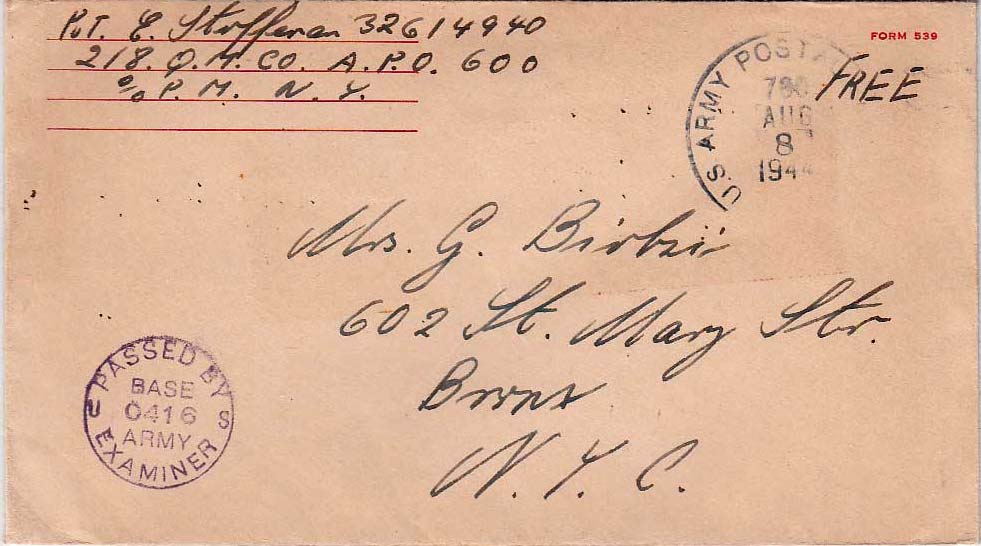 Pvt. E. Stofferan 32614940
218. Q.M. CO. A.P.O. 600
c/o P.M. N.Y.
FORM 539
FREE
U.S. ARMY POSTAL
AUG
8
1944
Mrs. G.
602 St. Mary Str.
Bronx
N.Y.C.
PASSED BY
BASE
0416
ARMY
U S
EXAMINER